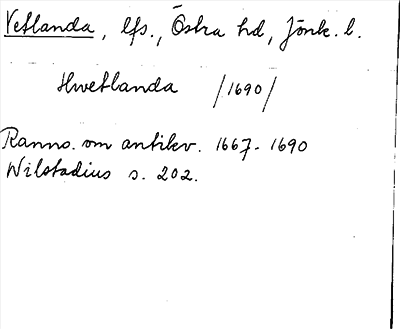 Vetlanda, lfs., Östra hd, Jönk. l.
Hwetlanda /1690/
Ranns. om antikv. 1667-1690
Wilstadius s. 202.